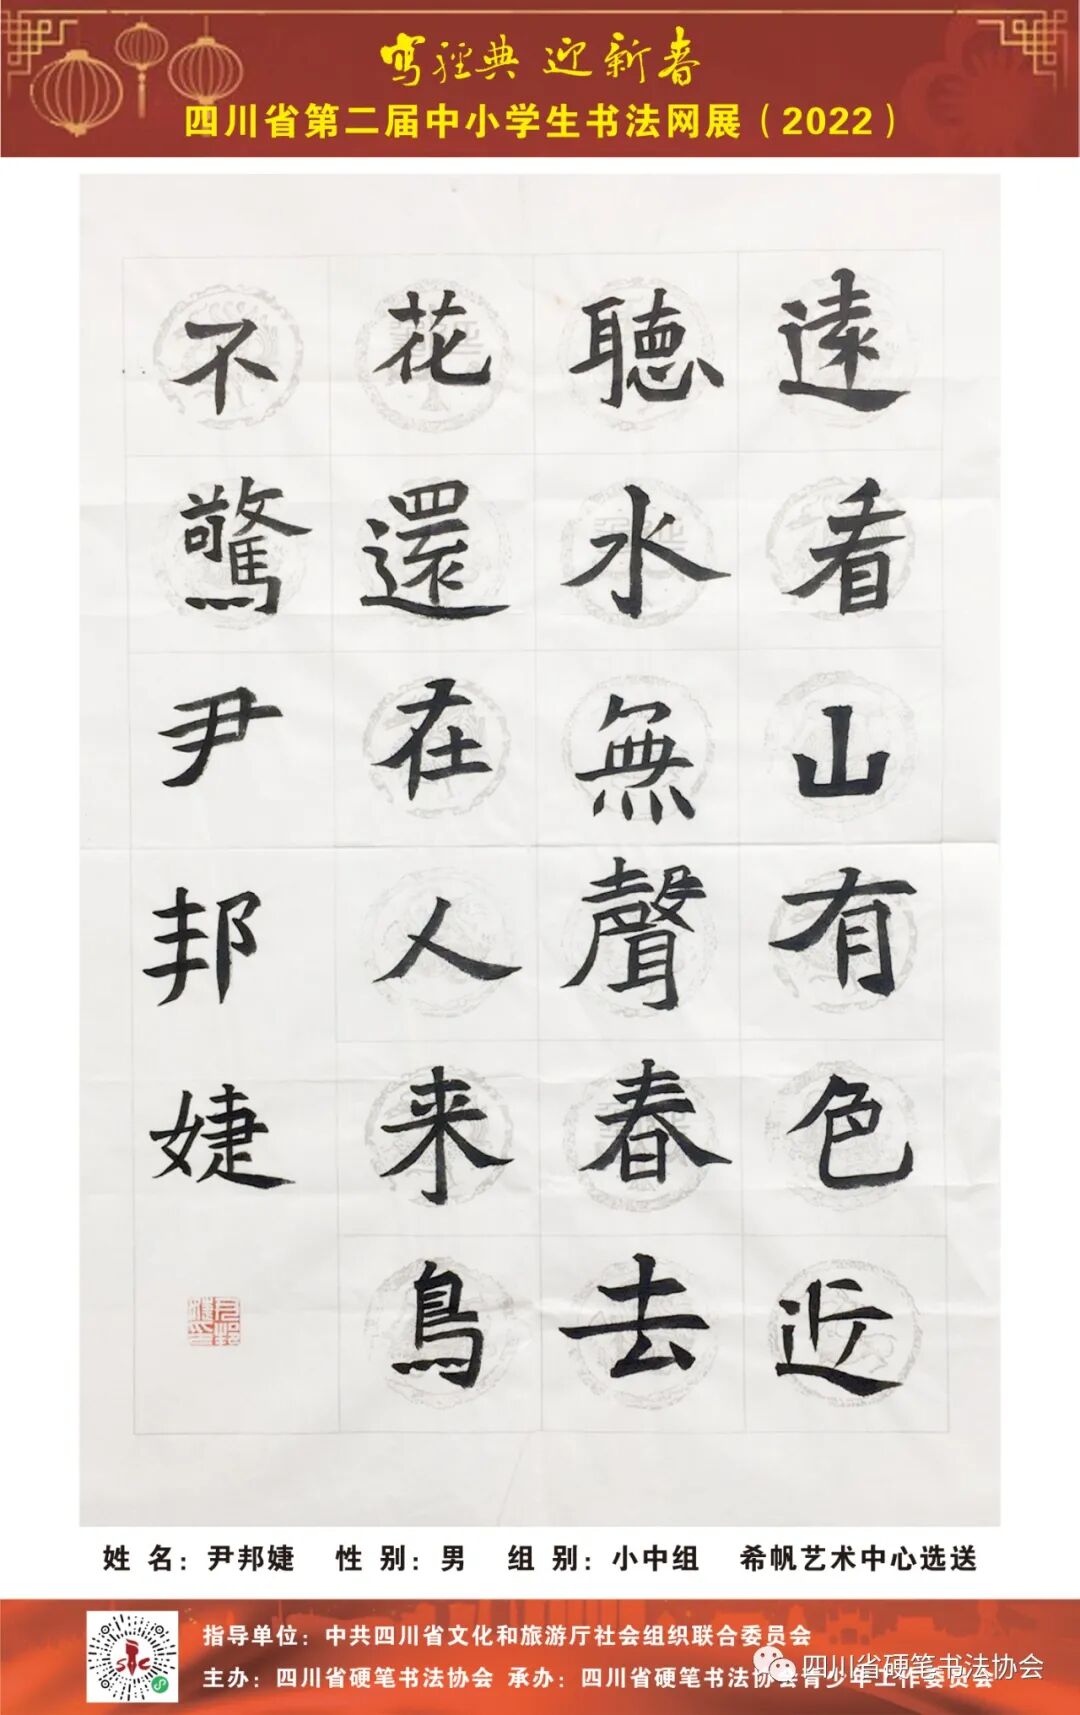 写経典 迎新春
四川省第二届中小学生书法网展（2022）
遠看山有色近
聽水無聲春去
花還在人来鳥
不驚尹邦婕
姓 名：尹邦婕 性 别：男 组 别：小中组 希帆艺术中心选送
指导单位：中共四川省文化和旅游厅社会组织联合委员会
主办：四川省硬笔书法协会 承办：四川省硬笔书法协会青少年工作委员会
四川省硬笔书法协会